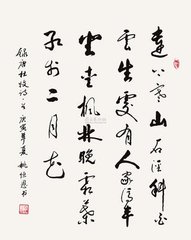 远上寒山石径斜白
云生处有人家停车
坐爱枫林晚霜叶
红于二月花
录唐杜牧诗一首